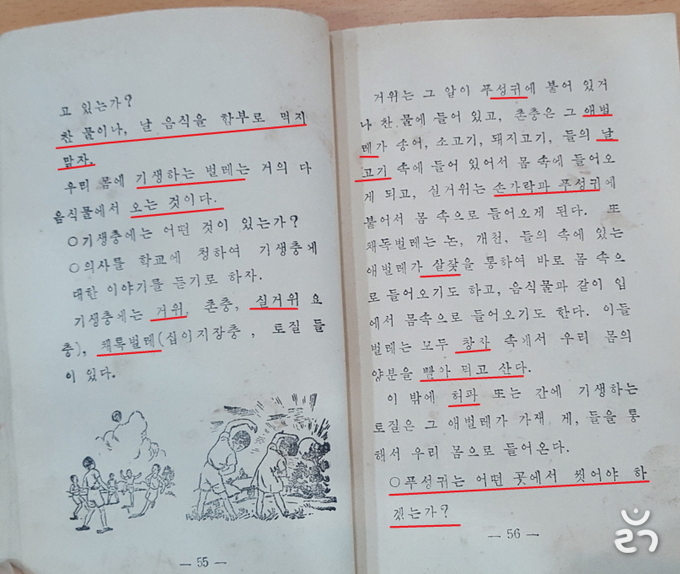 고 있는가?
찬 물이나, 날 음식을 함부로 먹지
말자.
우리 몸에 기생하는 벌레는 거의 다
음식물에서 오는 것이다.
○기생충에는 어떤 것이 있는가?
○의사를 학교에 청하여 기생충에
대한 이야기를 듣기로 하자.
기생충에는 거위, 촌충, 실거위 요
충), 채독벌레(십이지장충, 토질 들
이 있다.
— 55 —
거위는 그 알이 푸성귀에 붙어 있거
나 찬 물에 들어 있고, 촌충은 그 애벌
레가 송어, 소고기, 돼지고기, 들의 날
고기 속에 들어 있어서 몸 속에 들어오
게 되고, 실거위는 손가락과 푸성귀에
붙어서 몸 속으로 들어오게 된다. 또
채독벌레는 논, 개천, 들의 속에 있는
애벌레가 살갗을 통하여 바로 몸 속으
로 들어오기도 하고, 음식물과 같이 입
에서 몸속으로 들어오기도 한다. 이들
벌레는 모두 창자 속에서 우리 몸의
양분을 빨아 되고 산다.
이 밖에 허파 또는 간에 기생하는
토질은 그 애벌레가 가재 게, 들을 통
해서 우리 몸으로 들어온다.
○푸성귀는 어떤 곳에서 씻어야 하
겠는가?
— 56 —